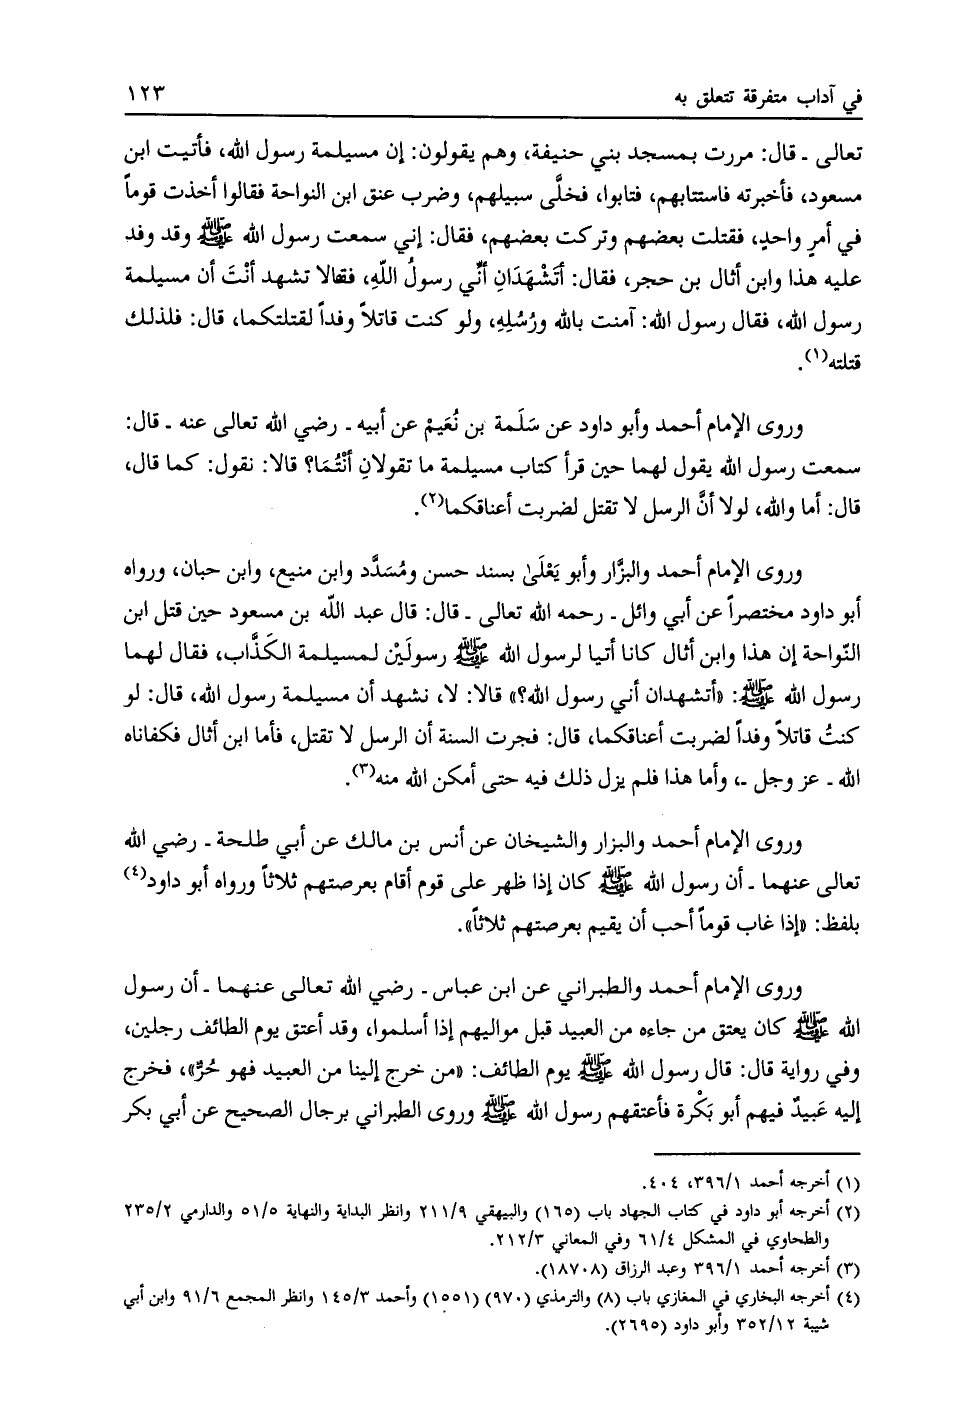 في آداب متفرقة تتعلق به ١٢٣
تعالى ـ قال: مررت بمسجد بني حنيفة، وهم يقولون: إن مسيلمة رسول الله، فأتيت ابن
مسعود، فأخبرته فاستتابهم، فتابوا، فخلَّى سبيلهم، وضرب عنق ابن النواحة فقالوا أخذت قوماً
في أمرٍ واحدٍ، فقتلت بعضهم وتركت بعضهم، فقال: إني سمعت رسول الله ﷺ وقد وفد
عليه هذا وابن أثال بن حجر، فقال: أتَشْهَدَانِ أنِّي رسولُ اللّهِ، فقالا تشهد أنْتَ أن مسيلمة
رسول الله، فقال رسول الله: آمنت بالله ورُسُلِهِ، ولو كنت قاتلاً وفداً لقتلتكما، قال: فلذلك
قتلته(١).
وروى الإمام أحمد وأبو داود عن سَلَمة بن نُعَيمْ عن أبيه ـ رضي الله تعالى عنه ـ قال:
سمعت رسول الله يقول لهما حين قرأ كتاب مسيلمة ما تقولانِ أنْتُمَا؟ قالا: نقول: كما قال،
قال: أما والله، لولا أنَّ الرسل لا تقتل لضربت أعناقكما(٢).
وروى الإمام أحمد والبزَّار وأبو يَعْلَىٰ بسند حسن ومُسَدَّد وابن منيع، وابن حبان، ورواه
أبو داود مختصراً عن أبي وائل ـ رحمه الله تعالى ـ قال: قال عبد اللّه بن مسعود حين قتل ابن
النّواحة إن هذا وابن أثال كانا أتيا لرسول الله ﷺ رسولَيْن لمسيلمة الكَذَّاب، فقال لهما
رسول الله ﷺ: «أتشهدان أني رسول الله؟» قالا: لا، نشهد أن مسيلمة رسول الله، قال: لو
كنتُ قاتلاً وفداً لضربت أعناقكما، قال: فجرت السنة أن الرسل لا تقتل، فأما ابن أثال فكفاناه
الله ـ عز وجل ـ، وأما هذا فلم يزل ذلك فيه حتى أمكن الله منه(٣).
وروى الإمام أحمد والبزار والشيخان عن أنس بن مالك عن أبي طلحة ـ رضي الله
تعالى عنهما ـ أن رسول الله ﷺ كان إذا ظهر على قوم أقام بعرصتهم ثلاثاً ورواه أبو داود(٤)
بلفظ: «إذا غاب قوماً أحب أن يقيم بعرصتهم ثلاثاً».
وروى الإمام أحمد والطبراني عن ابن عباس ـ رضي الله تعالى عنهما ـ أن رسول
الله ﷺ كان يعتق من جاءه من العبيد قبل مواليهم إذا أسلموا، وقد أعتق يوم الطائف رجلين،
وفي رواية قال: قال رسول الله ﷺ يوم الطائف: «من خرج إلينا من العبيد فهو حُرٌّ»، فخرج
إليه عَبيدٌ فيهم أبو بَكْرة فأعتقهم رسول الله ﷺ وروى الطبراني برجال الصحيح عن أبي بكر
(١) أخرجه أحمد ٣٩٦/١، ٤٠٤.
(٢) أخرجه أبو داود في كتاب الجهاد باب (١٦٥) والبيهقي ٢١١/٩ وانظر البداية والنهاية ٥١/٥ والدارمي ٢٣٥/٢
والطحاوي في المشكل ٦١/٤ وفي المعاني ٢١٢/٣.
(٣) أخرجه أحمد ٣٩٦/١ وعبد الرزاق (١٨٧٠٨).
(٤) أخرجه البخاري في المغازي باب (٨) والترمذي (٩٧٠) (١٥٥١) وأحمد ١٤٥/٣ وانظر المجمع ٩١/٦ وابن أبي
شيبة ٣٥٢/١٢ وأبو داود (٢٦٩٥).